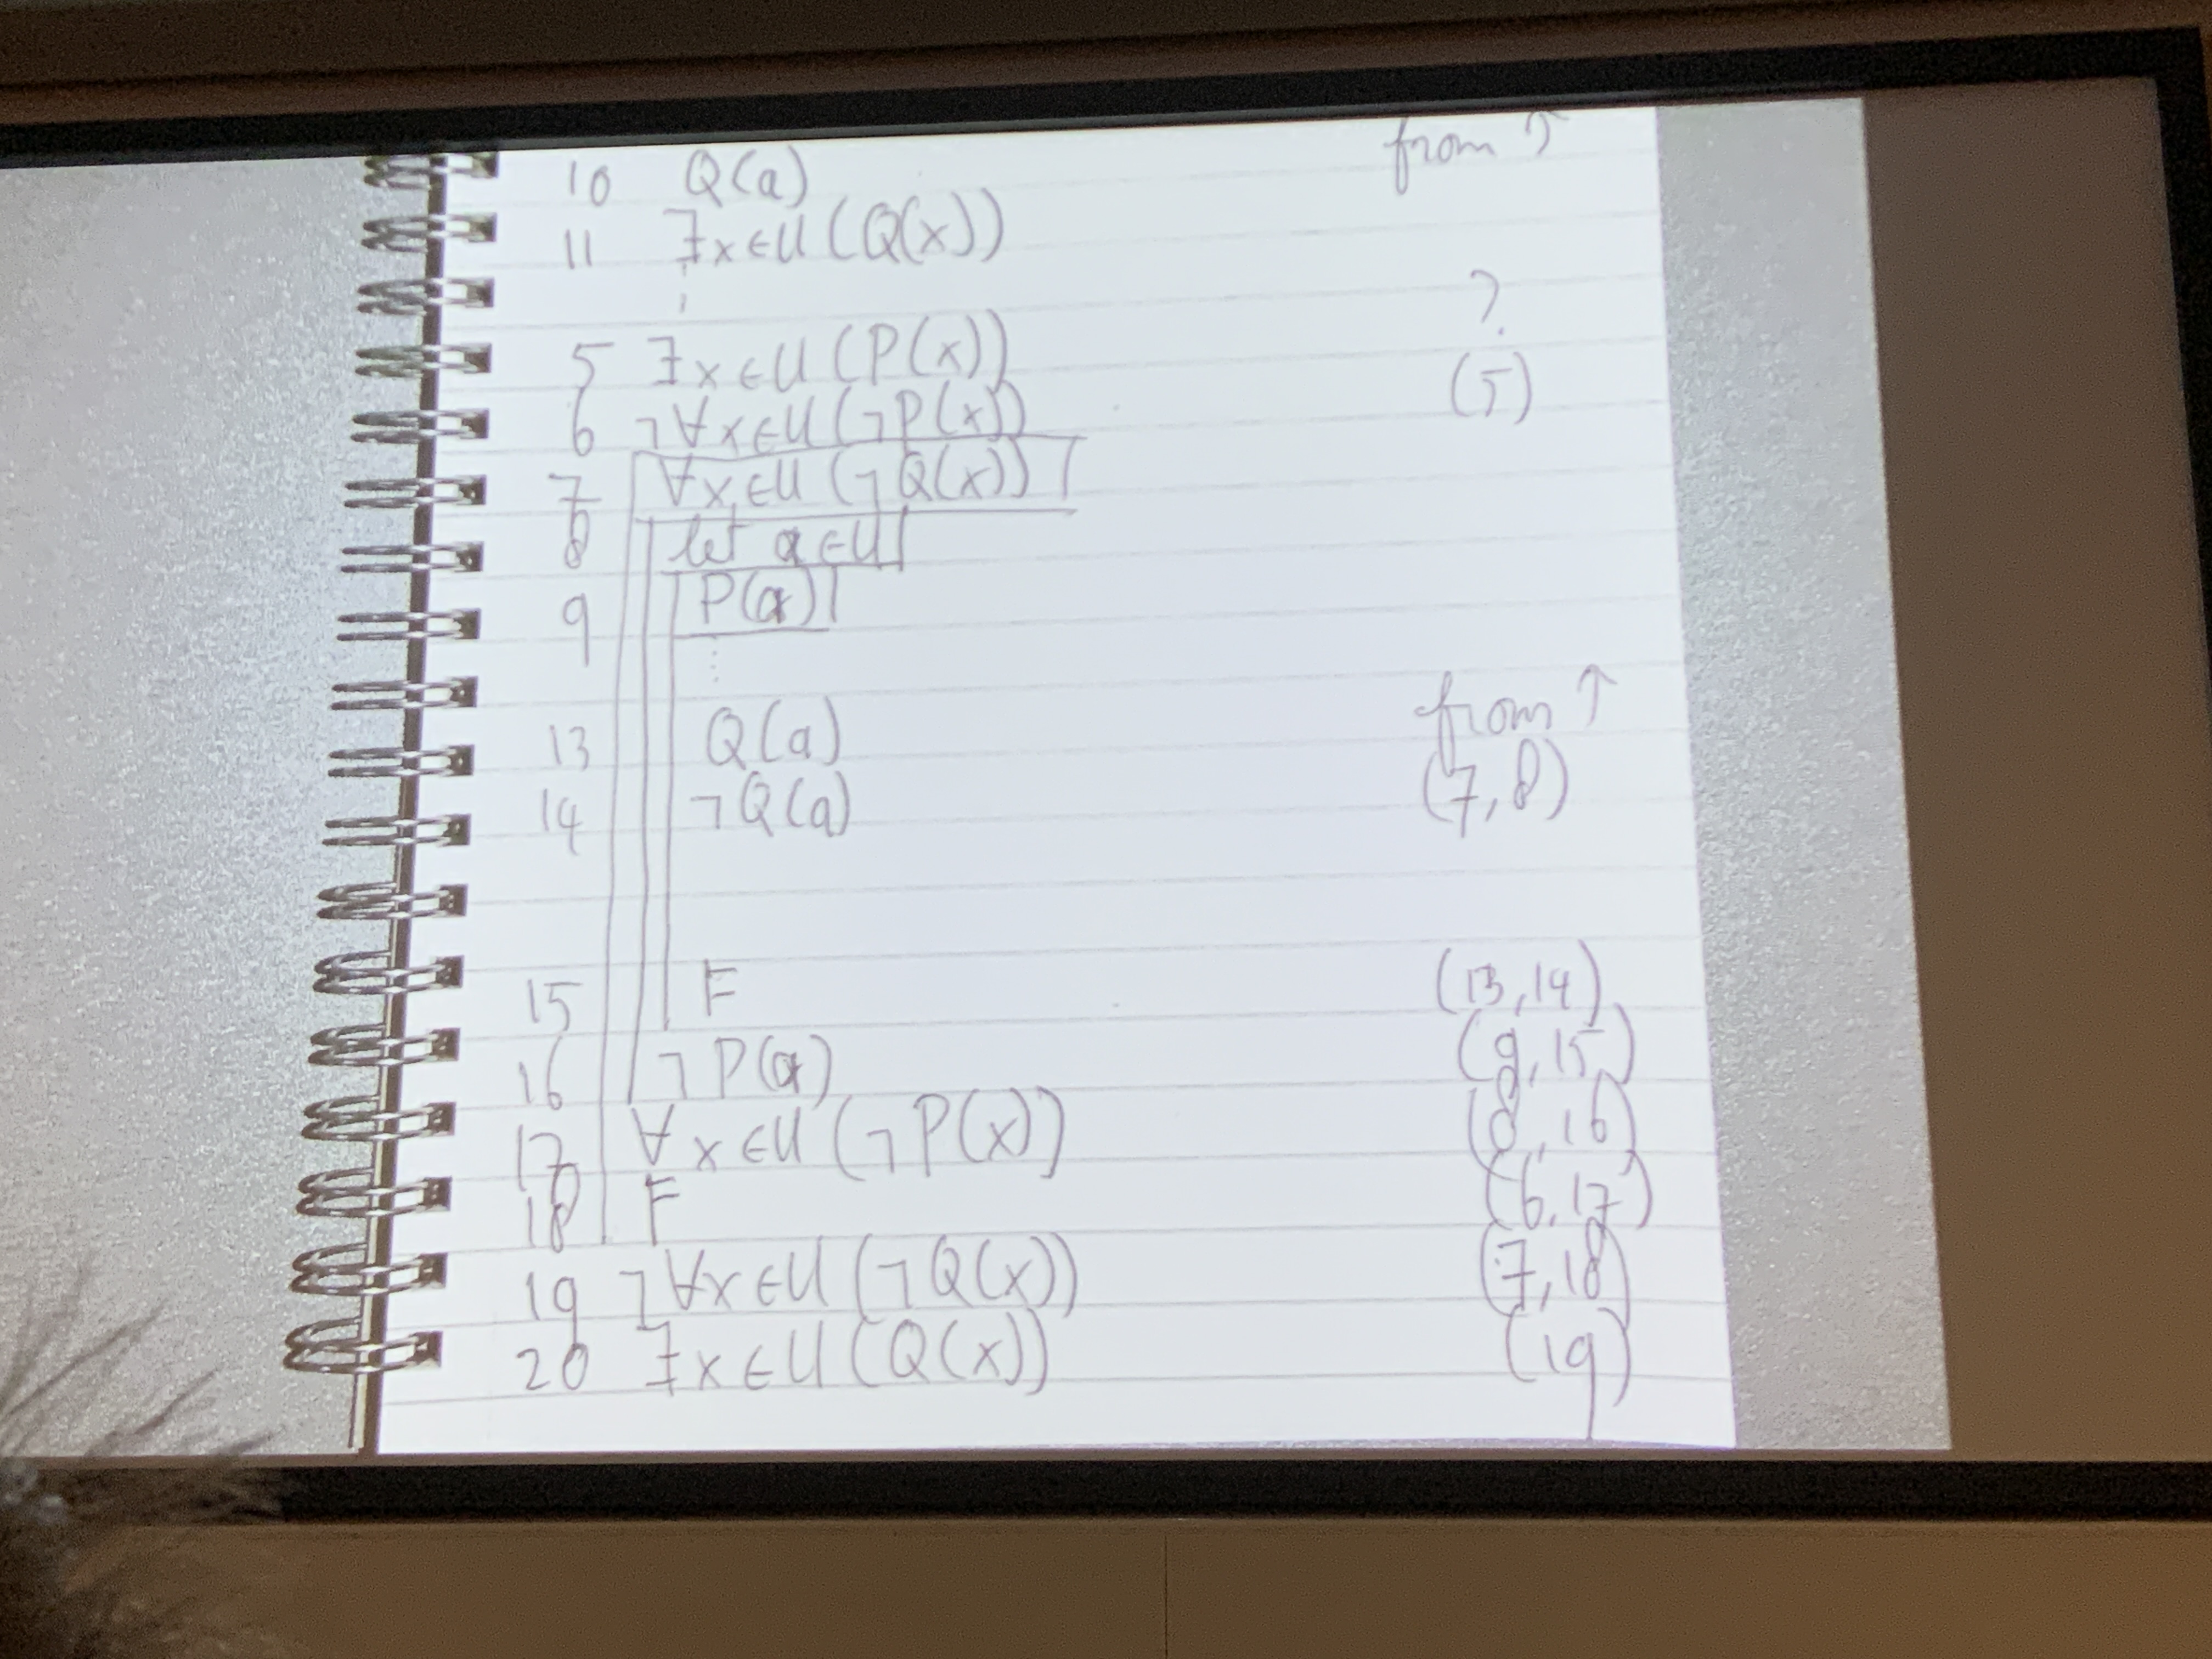 10 Q(a) from ↑
11 ∃x∈U(Q(x))
⋮ ?
5 ∃x∈U(P(x)) (5)
6 ¬∀x∈U(¬P(x))
7 ∀x∈U(¬Q(x))
8 let a∈U
9 P(a)
⋮
13 Q(a) from ↑
14 ¬Q(a) (7,8)
15 F (13,14)
16 ¬P(a) (9,15)
17 ∀x∈U(¬P(x)) (8,16)
18 F (6,17)
19 ¬∀x∈U(¬Q(x)) (7,18)
20 ∃x∈U(Q(x)) (19)